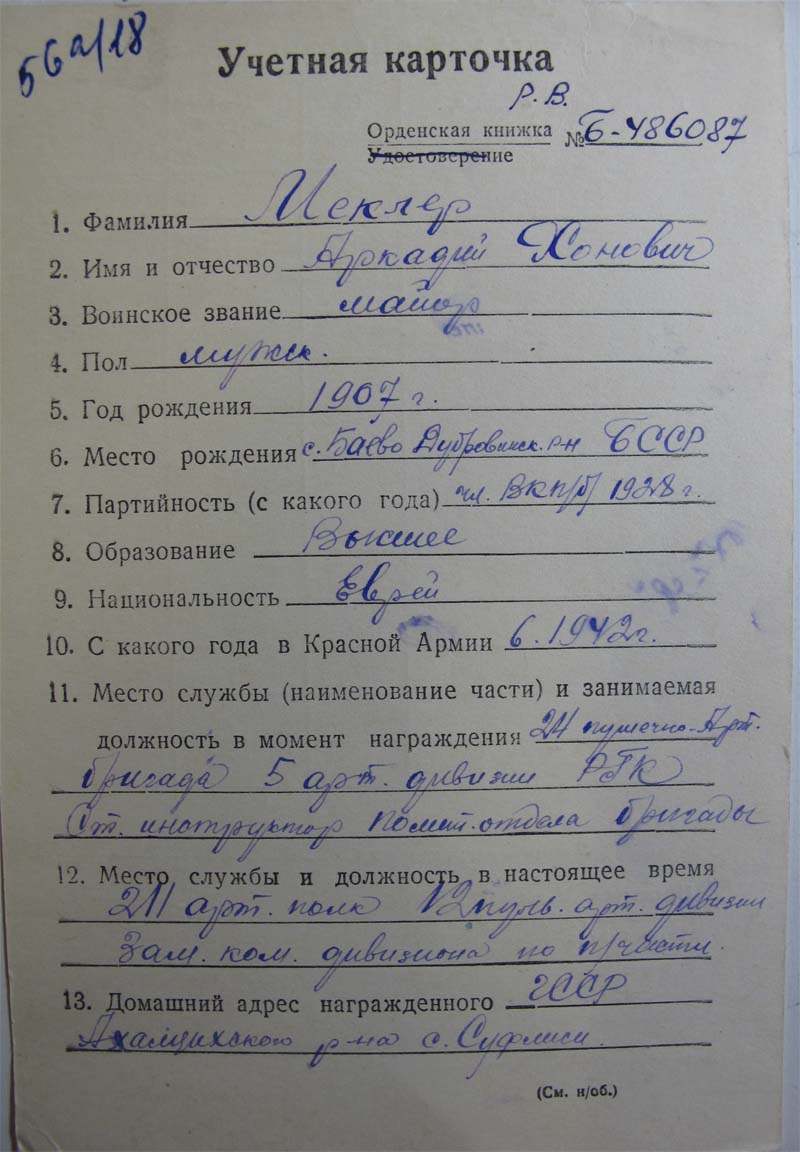 56а/18
Учетная карточка
Р.В.
Орденская книжка № Б-486087
Удостоверение
1. Фамилия Меклер
2. Имя и отчество Аркадий Хонович
3. Воинское звание майор
4. Пол мужск.
5. Год рождения 1907 г.
6. Место рождения с. Баево Дубровинск. р-н БССР
7. Партийность (с какого года) чл. ВКП/б/ 1928 г.
8. Образование Высшее
9. Национальность Еврей
10. С какого года в Красной Армии 6.1942 г.
11. Место службы (наименование части) и занимаемая
должность в момент награждения 24 пушечно-Арт.
бригада 5 арт. дивизии РГК
Ст. инструктор полит. отдела бригады
12. Место службы и должность в настоящее время
211 арт. полк 12 пуль. арт. дивизии
Зам. ком. дивизиона по п/части.
13. Домашний адрес награжденного ГССР
Ахалцихского р-на с. Суфлиси.
(См. н/об.)